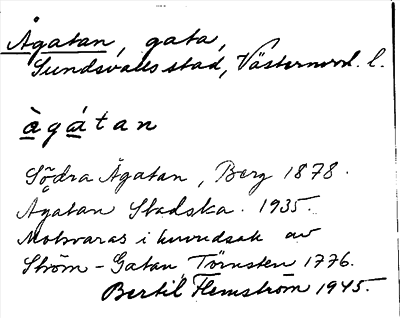 Ågatan, gata,
Sundsvalls stad, Västernorrl. l.
àgátan
Södra Ågatan, Berg 1878.
Ågatan Stadska. 1935.
Motsvaras i huvudsak av
Ström-Gatan Törnsten 1776.
Bertil Flemström 1945.